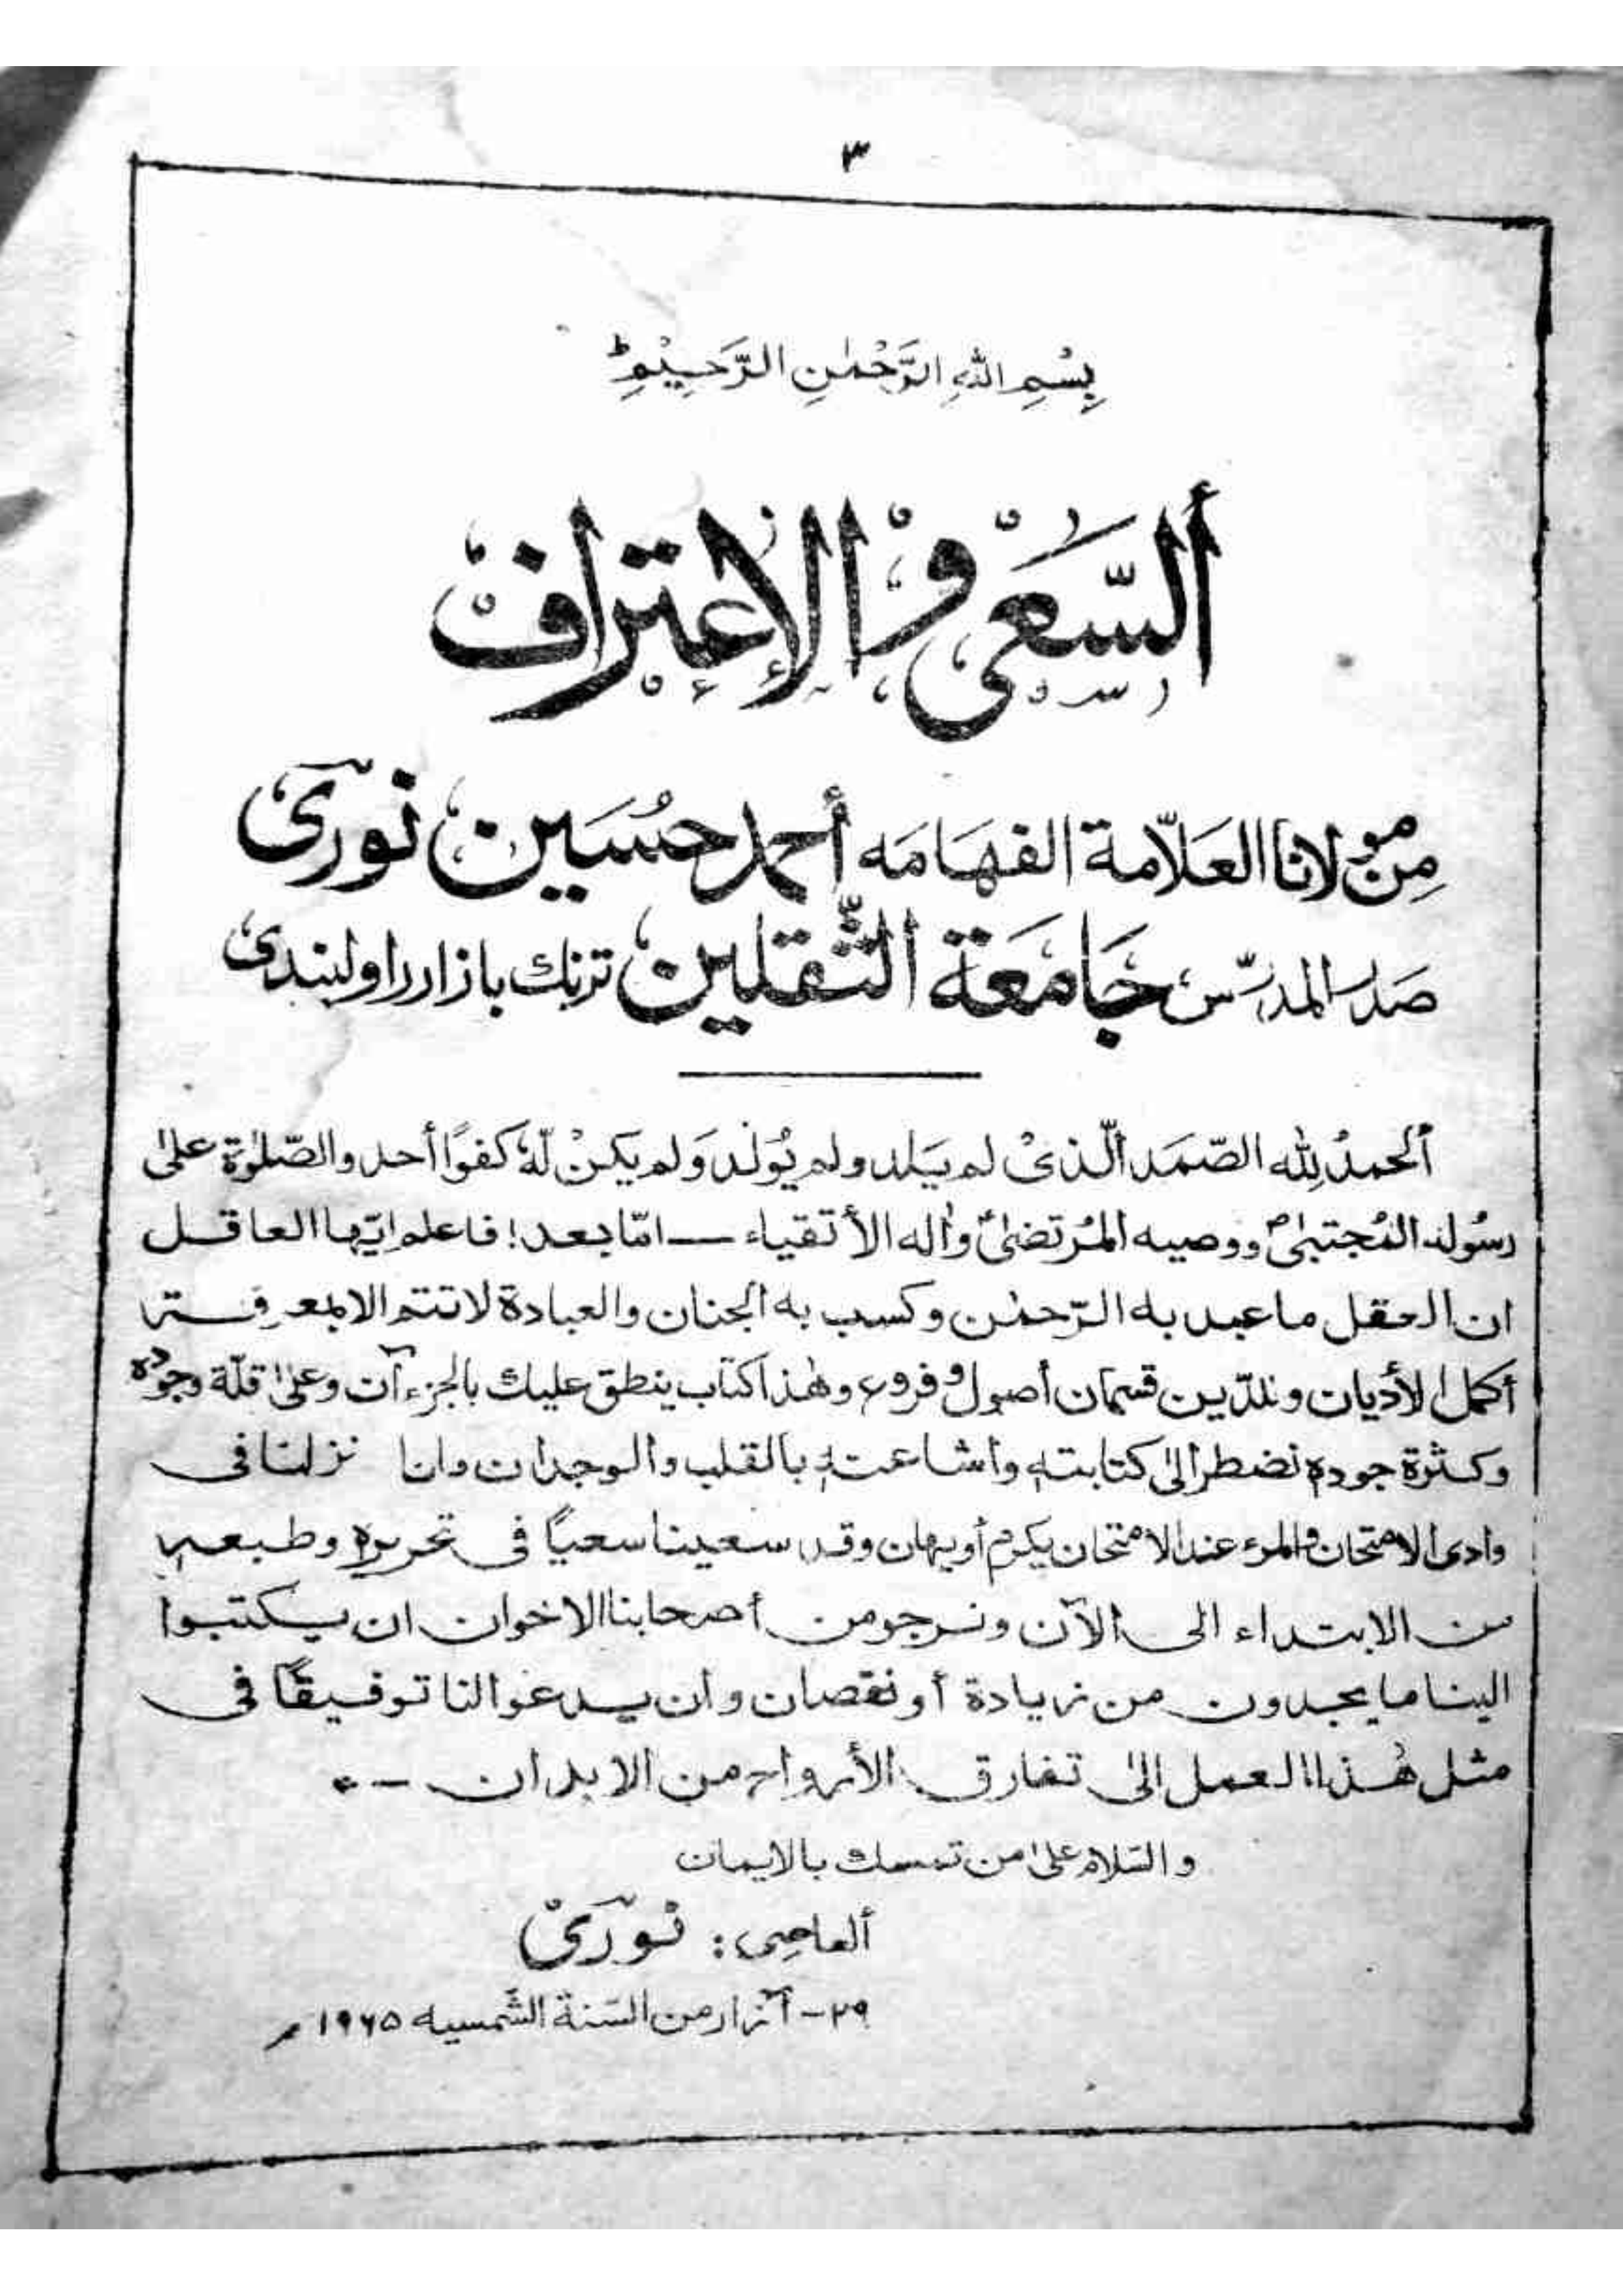 ٣
بِسْمِ اللّٰهِ الرَّحْمٰنِ الرَّحِيْمِ ط
أَلسَّعْىُ وَالْاِعْتِرَافُ
مِن مولانا العَلّامة الفهَامَه أحمد حُسَين نورى
صَدر المدرّس جَامعَة الثّقلين ترنك بازار راولبندى
أَلحمدُ لِلّٰه الصّمَد الّذىْ لم يَلد ولم يُولَد وَلم يكنْ لّهٗ كفوًا أحد والصّلوٰة علىٰ
رسُوله المُجتبىٰؐ ووصيه المُرتضىٰؑ واٰله الأتقياء — امّا بعد! فاعلم ايّها العاقل
ان العقل ما عبد به الرّحمٰن وكسب به الجنان والعبادة لا تتم الا بمعرفة
أكمل الأديان وللدّين قسمان أصول و فروع وهٰذا كتاب ينطق عليك بالجزءآن وعلىٰ قلّة وجودهٖ
وكثرة جودهٖ نضطر الىٰ كتابتهٖ واشاعتهٖ بالقلب والوجدان وانا نزلنا فى
وادى الامتحان والمرء عند الامتحان يكرم أو يهان وقد سعينا سعياً فى تحريرهٖ وطبعهٖ
من الابتداء الى الآن ونرجو من أصحابنا الاخوان ان يكتبوا
الينا ما يجدون من زيادة أو نقصان وان يدعوا لنا توفيقًا فى
مثل هٰذا العمل الىٰ تفارق الأرواح من الابدان —٭
والسّلام علىٰ من تمسك بالايمان
ألعاصى: نورىْ
٢٩- آزار من السّنة الشّمسيه ١٩٦٥ م